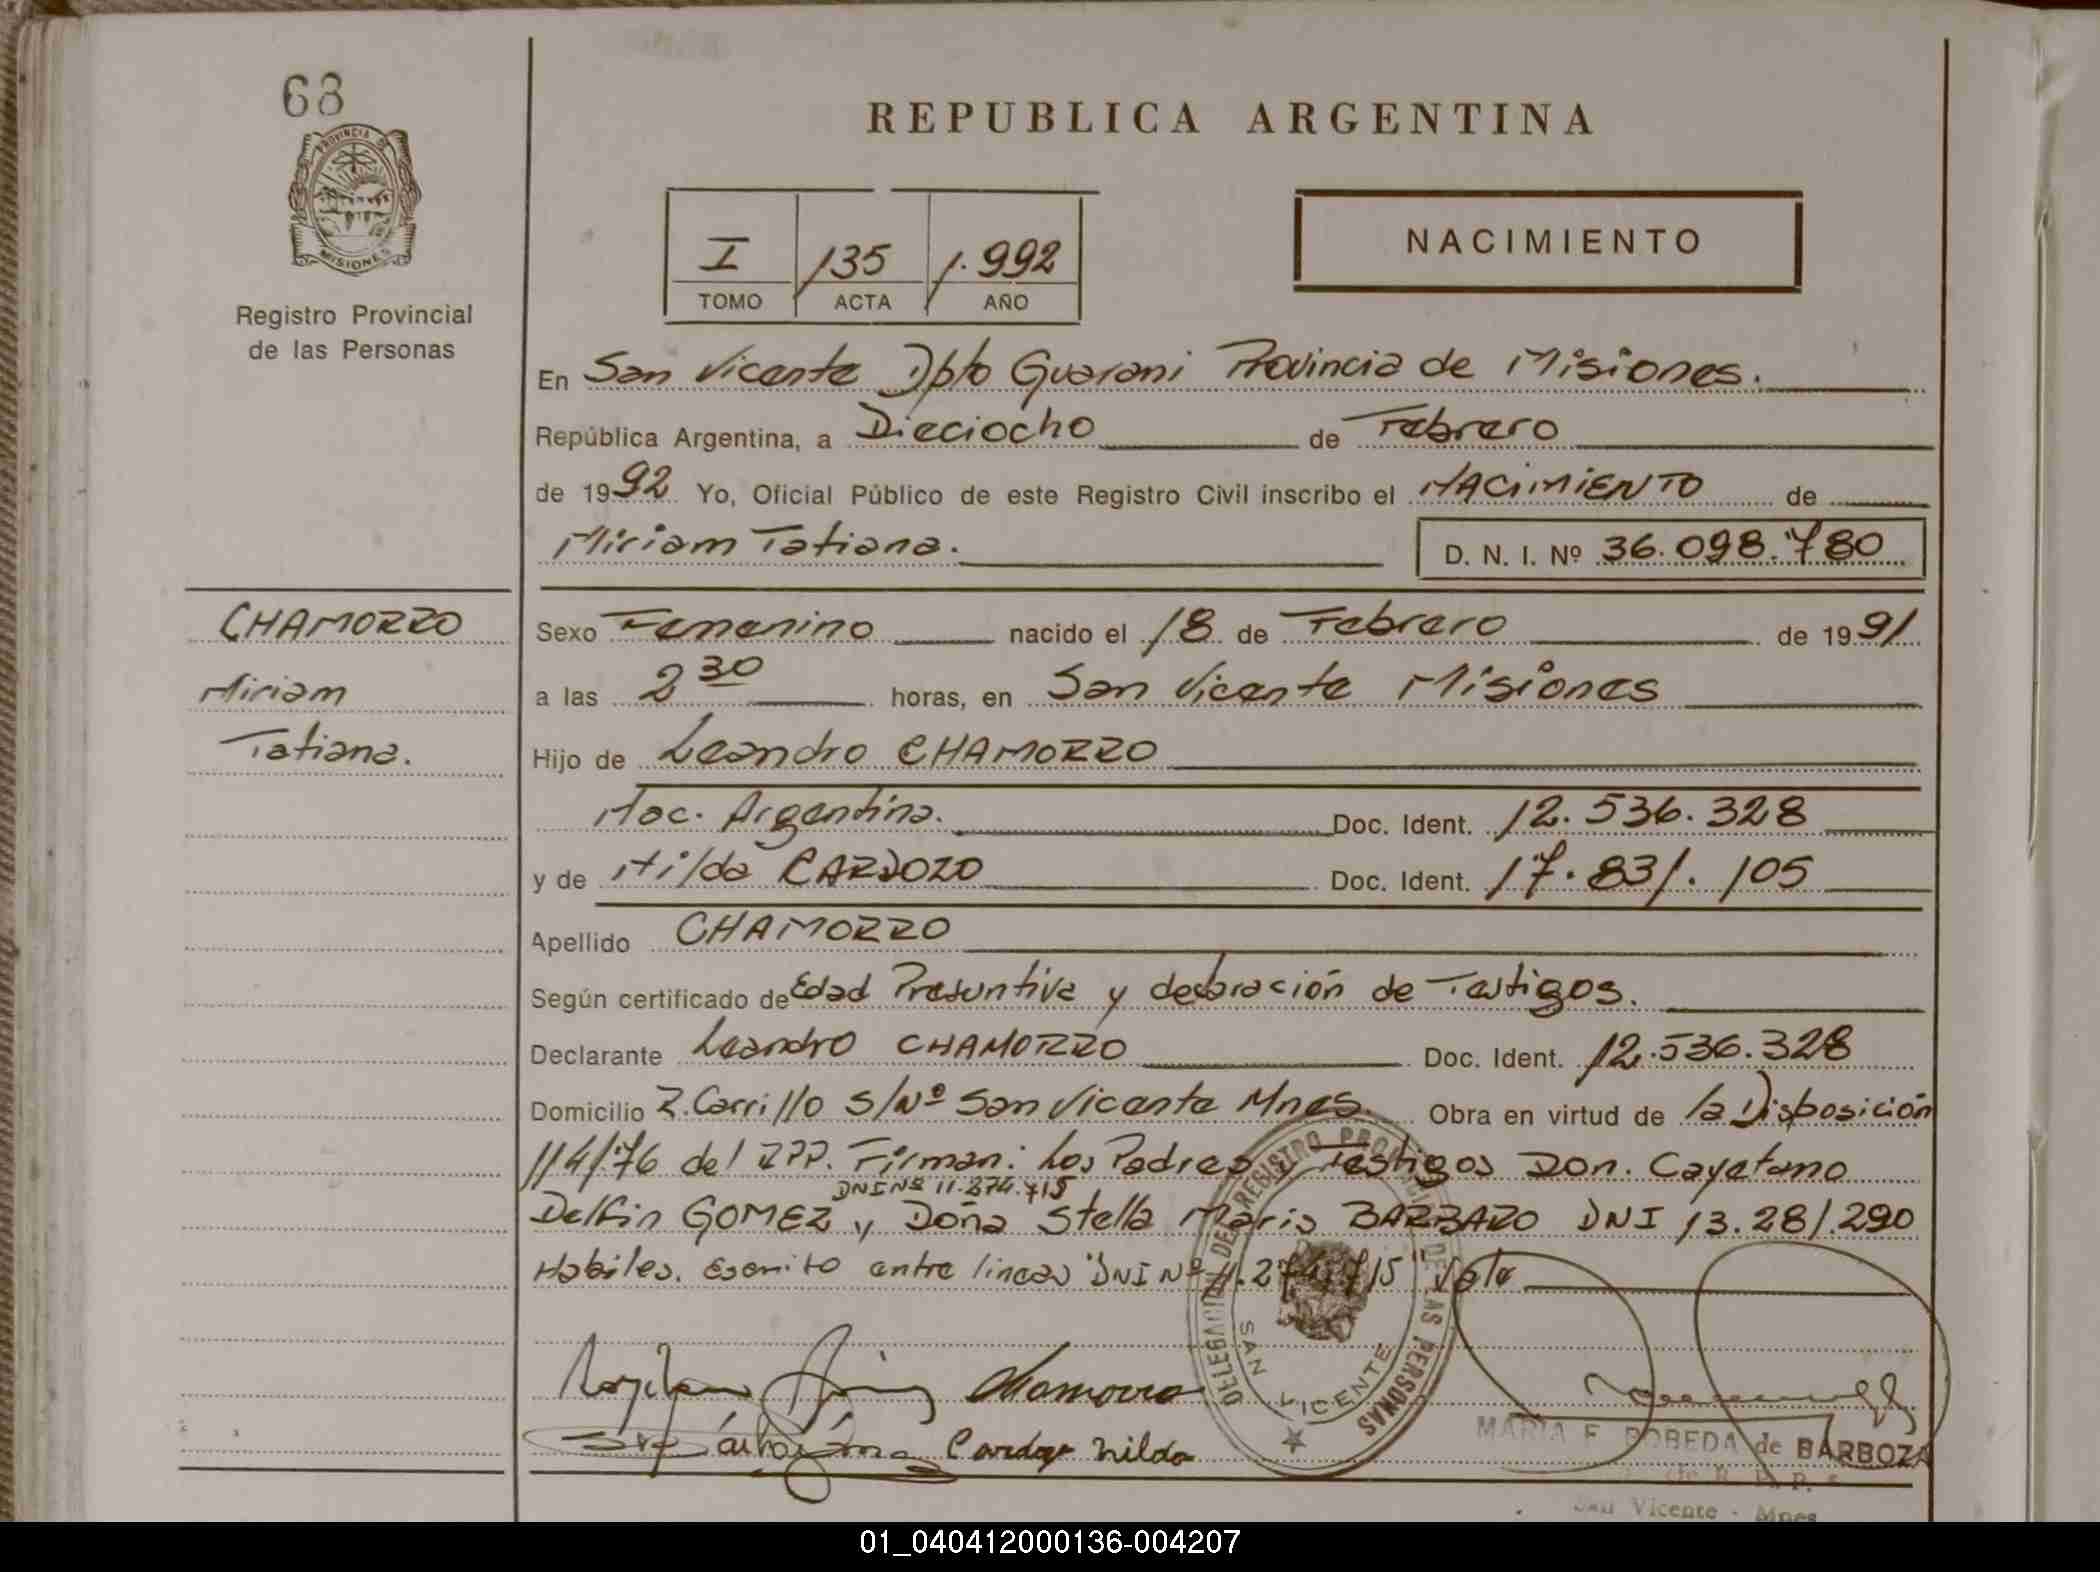 68
PROVINCIA DE
MISIONES
Registro Provincial
de las Personas
REPUBLICA ARGENTINA
I 135 1.992
TOMO ACTA AÑO
NACIMIENTO
En San Vicente Dpto Guarani Provincia de Misiones.
República Argentina, a Dieciocho de Febrero
de 1992 Yo, Oficial Público de este Registro Civil inscribo el NACIMIENTO de
Miriam Tatiana. D. N. I. Nº 36.098.780
CHAMORRO
Miriam
Tatiana.
Sexo Femenino nacido el 18 de Febrero de 1991
a las 2 30 horas, en San Vicente Misiones
Hijo de Leandro CHAMORRO
Nac. Argentina. Doc. Ident. 12.536.328
y de Hilda CARDOZO Doc. Ident. 17.831.105
Apellido CHAMORRO
Según certificado de Edad Presuntiva y declaración de Testigos.
Declarante Leandro CHAMORRO Doc. Ident. 12.536.328
Domicilio R. Carrillo S/Nº San Vicente Mnes. Obra en virtud de la Disposición
114/76 del RPP. Firman: Los Padres y Testigos Don. Cayetano
DNI Nº 11.274.715
Delfin GOMEZ y Doña Stella Maris BARBARO DNI 13.281.290
Habiles. Escrito entre lineas "DNI Nº 11.274.715" Vale
DELEGACION DEL REGISTRO PROVINCIAL DE LAS PERSONAS
SAN VICENTE
Chamorro
Cardozo Nilda
MARIA F. POBEDA de BARBOZA
de R. P. P.
San Vicente - Mnes
01_040412000136-004207